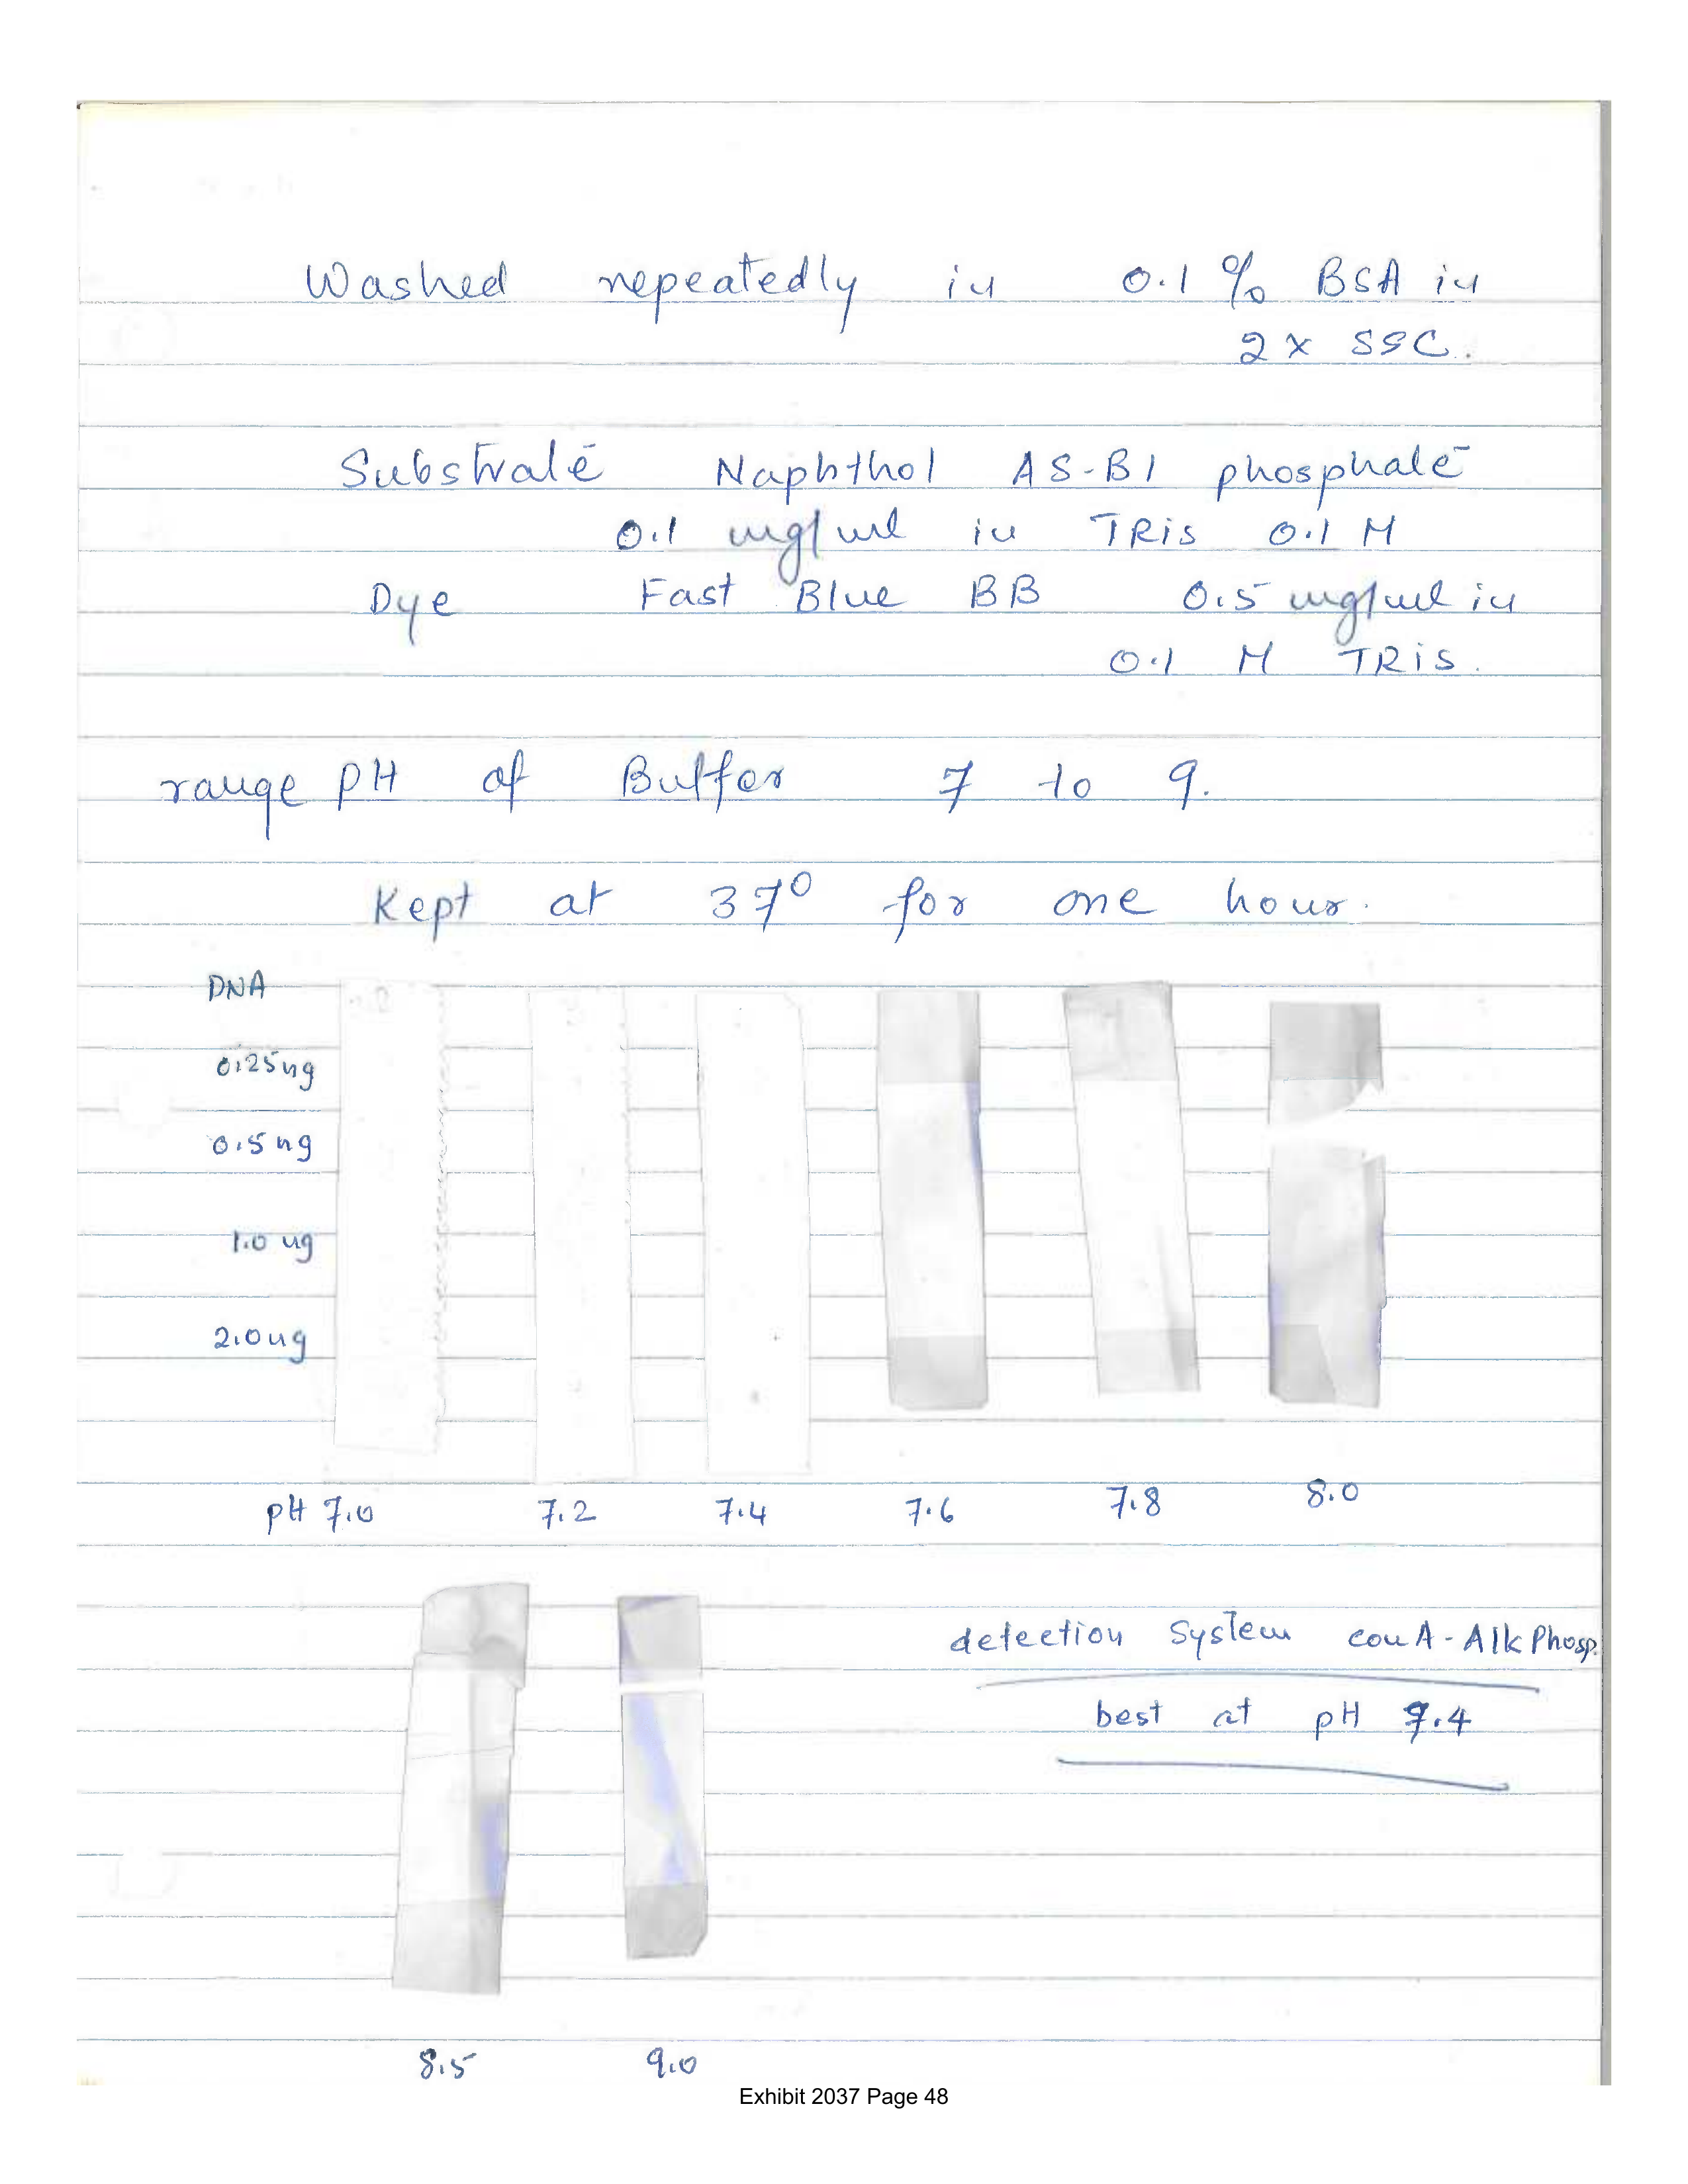 Washed repeatedly in 0.1 % BSA in
2 x SSC.
Substrate Naphthol AS-BI phosphate
0.1 mg/ml in TRis 0.1 M
Dye Fast Blue BB 0.5 mg/ml in
0.1 M TRis.
range pH of Buffer 7 to 9.
Kept at 37° for one hour.
DNA
0.25 ng
0.5 ng
1.0 ng
2.0 ng
pH 7.0 7.2 7.4 7.6 7.8 8.0
detection System con A - Alk Phosp.
best at pH 7.4
8.5 9.0
Exhibit 2037 Page 48